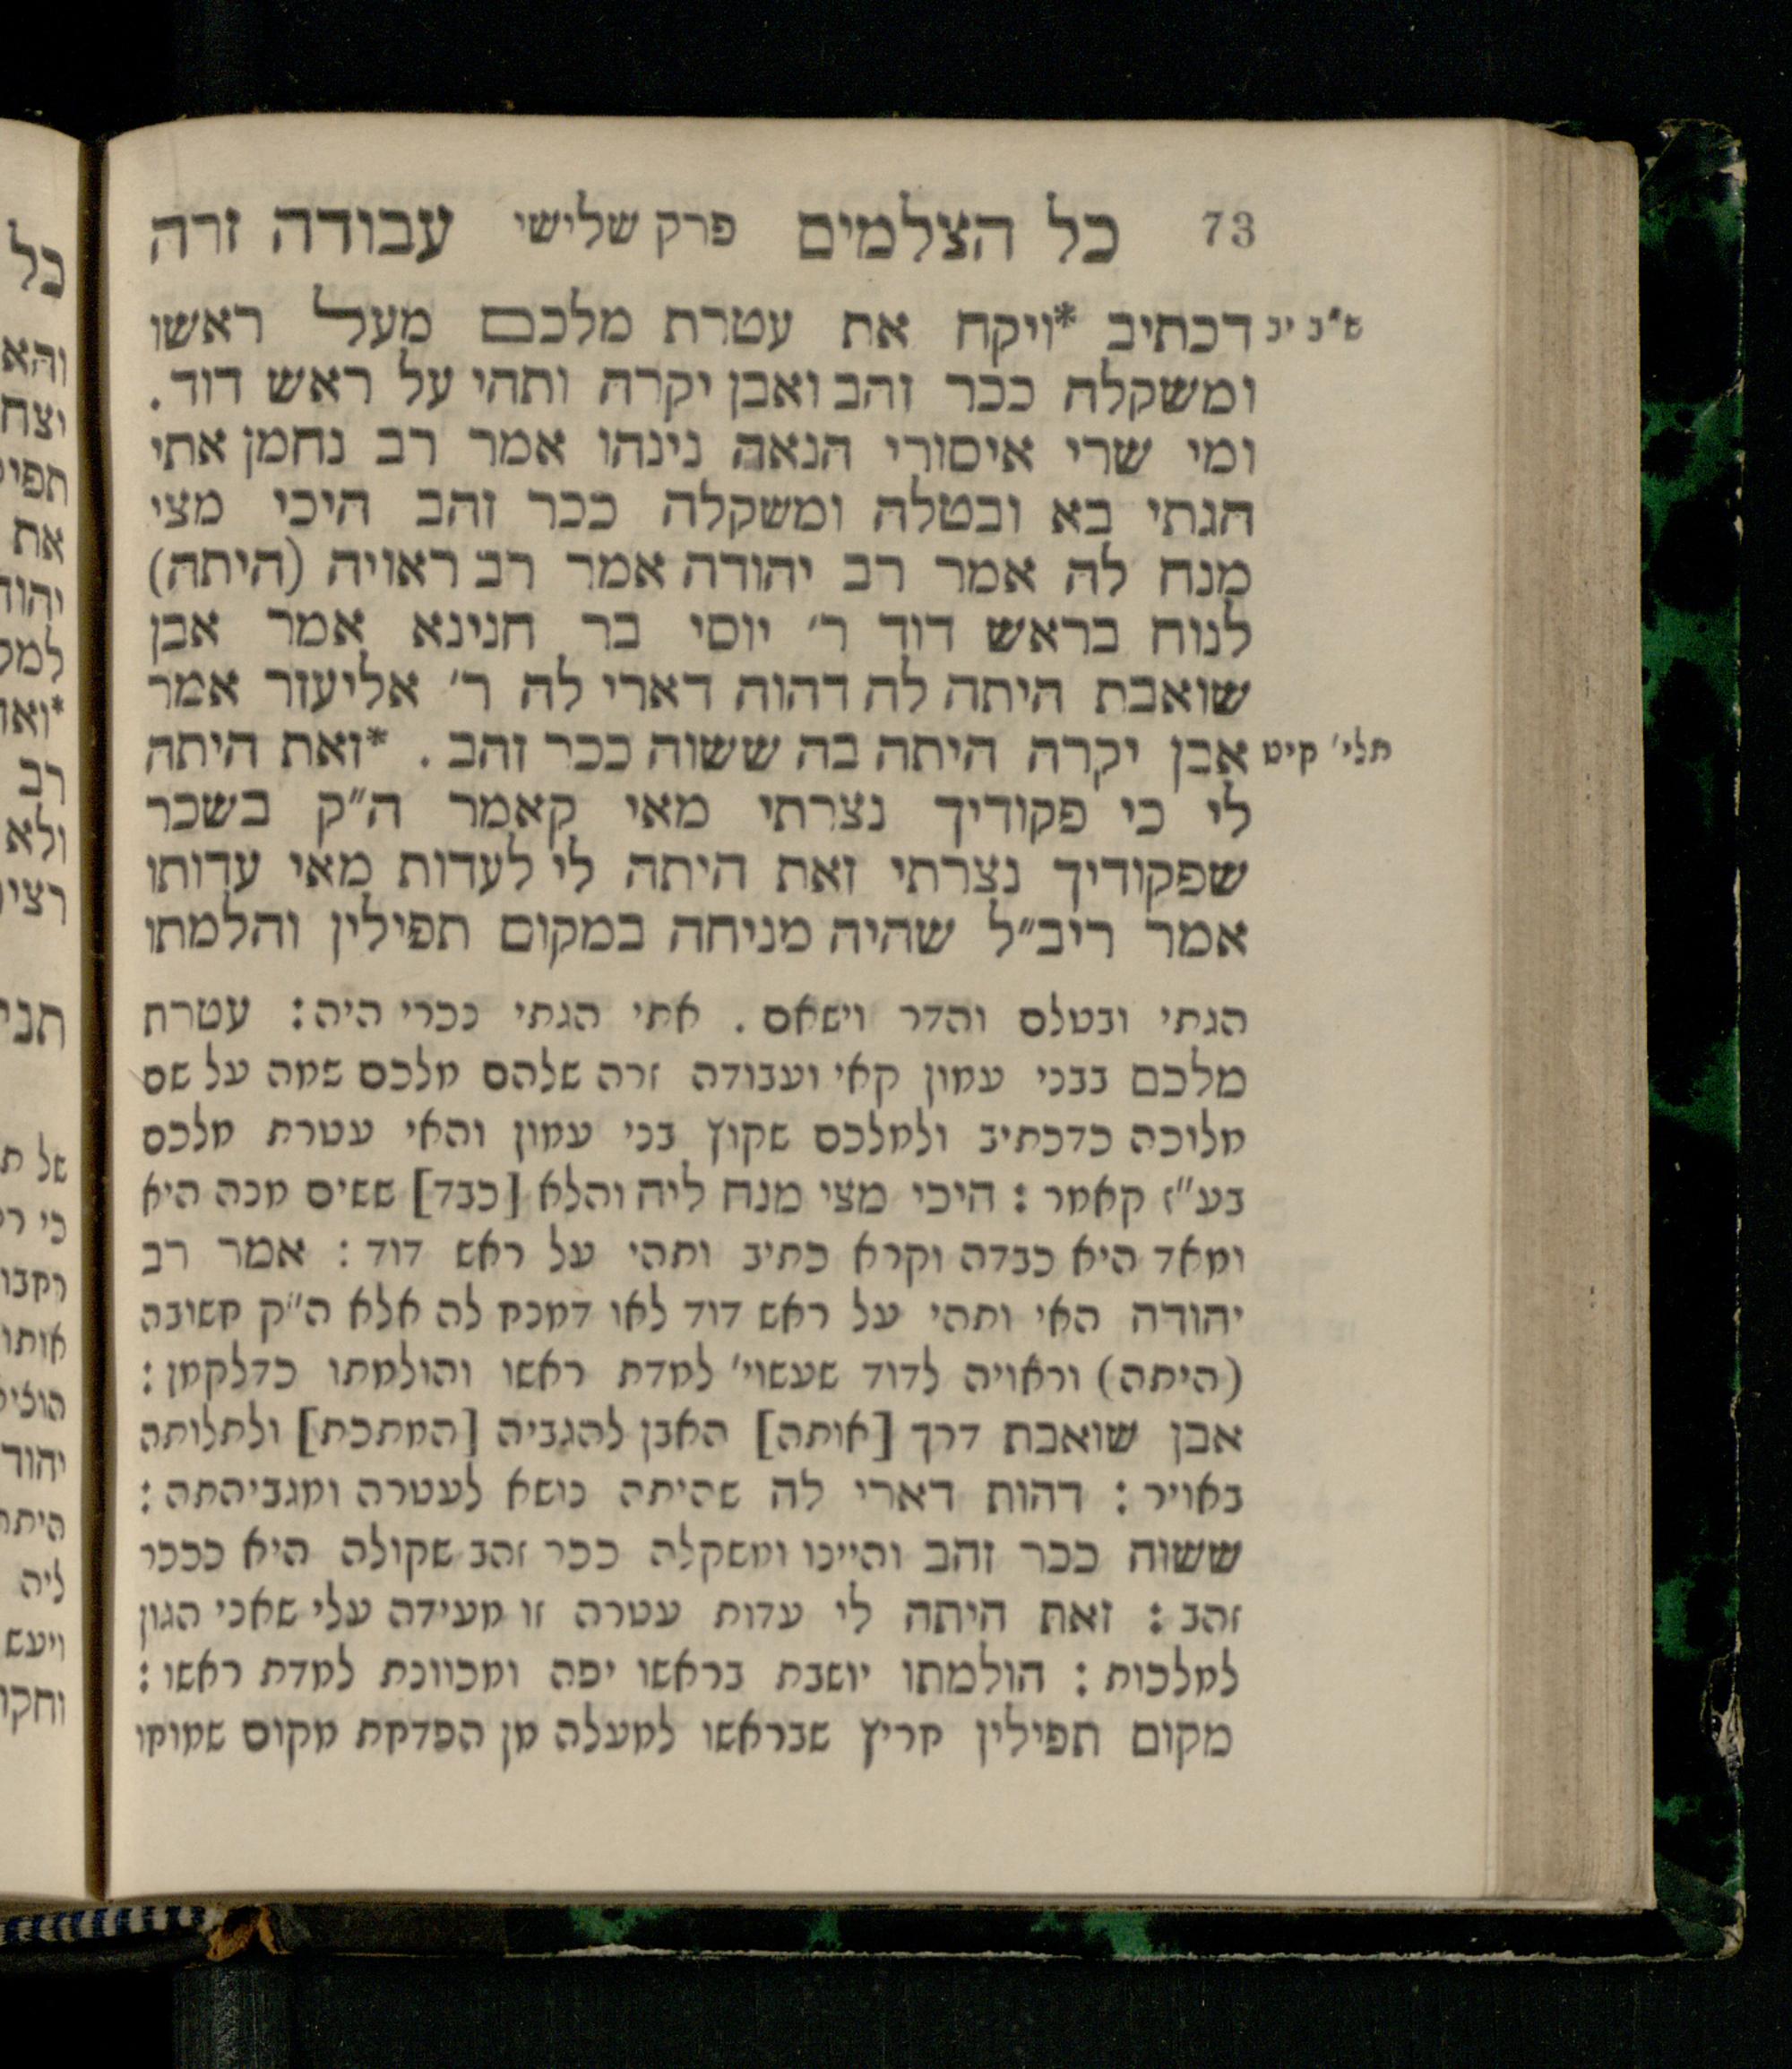 73 כל הצלמים פרק שלישי עבודה זרה
ש"ב יב
דכתיב *ויקח את עטרת מלכם מעל ראשו
ומשקלה ככר זהב ואבן יקרה ותהי על ראש דוד.
ומי שרי איסורי הנאה נינהו אמר רב נחמן אתי
הגתי בא ובטלה ומשקלה ככר זהב היכי מצי
מנח לה אמר רב יהודה אמר רב ראויה (היתה)
לנוח בראש דוד ר' יוסי בר חנינא אמר אבן
שואבת היתה לה דהוה דארי לה ר' אליעזר אמר
תלי' קיט
אבן יקרה היתה בה ששוה ככר זהב. *זאת היתה
לי כי פקודיך נצרתי מאי קאמר ה"ק בשכר
שפקודיך נצרתי זאת היתה לי לעדות מאי עדותו
אמר ריב"ל שהיה מניחה במקום תפילין והלמתו
הגתי ובטלם והדר וישאם. אתי הגתי נכרי היה: עטרת
מלכם בבני עמון קאי ועבודה זרה שלהם מלכם שמה על שם
מלוכה כדכתיב ולמלכם שקוץ בני עמון והאי עטרת מלכם
בע"ז קאמר: היכי מצי מנח ליה והלא [כבד] ששים מנה היא
ומאד היא כבדה וקרא כתיב ותהי על ראש דוד: אמר רב
יהודה האי ותהי על ראש דוד לאו דמנח לה אלא ה"ק חשובה
(היתה) וראויה לדוד שעשוי' למדת ראשו והולמתו כדלקמן:
אבן שואבת דרך [אותה] האבן להגביה [המתכת] ולתלותה
באויר: דהות דארי לה שהיתה נושא לעטרה ומגביהתה:
ששוה ככר זהב והיינו ומשקלה ככר זהב שקולה היא כככר
זהב: זאת היתה לי עדות עטרה זו מעידה עלי שאני הגון
למלכות: הולמתו יושבת בראשו יפה ומכוונת למדת ראשו:
מקום תפילין חריץ שבראשו למעלה מן הפדחת מקום שמוחו